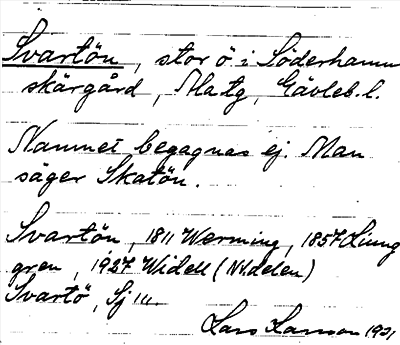 Svartön, stor ö i Söderhamns
skärgård, Alatg, Gävleb. l.
Namnet begagnas ej. Man
säger Skatön.
Svartön, 1811 Werming, 1857 Ljung
gren, 1927 Widell (N. delen)
Svartö, Sj 111.
Lars Larsson 1931